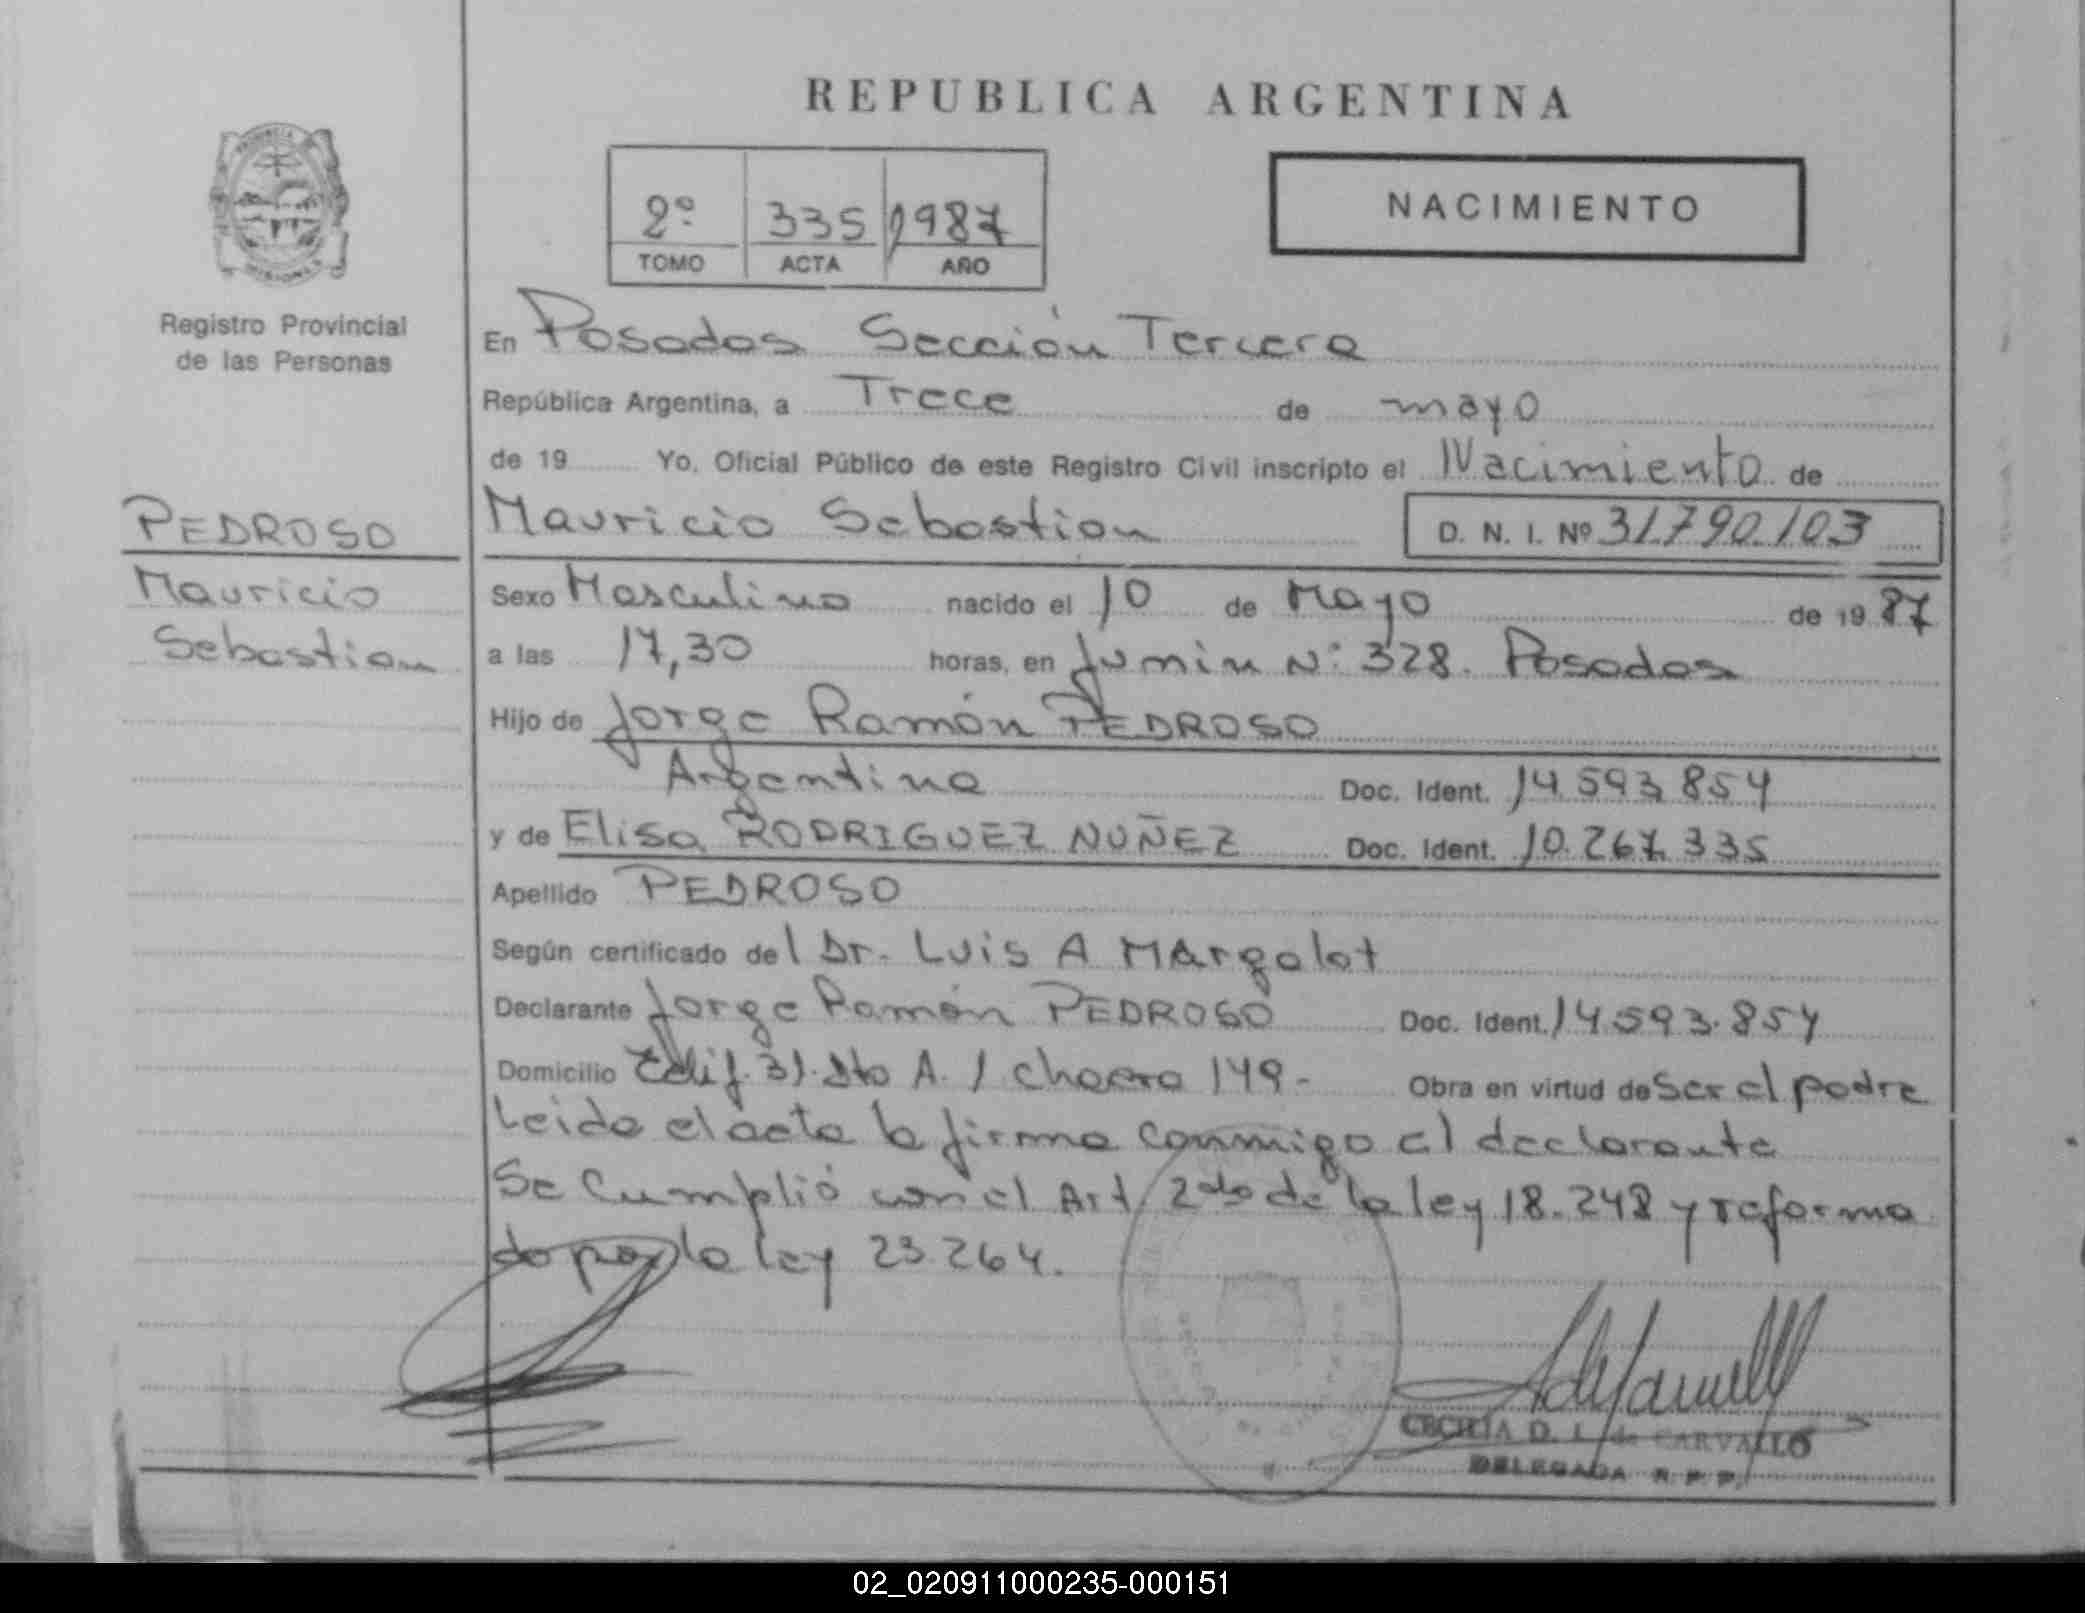 REPUBLICA ARGENTINA
2º 335 1987
TOMO ACTA AÑO
NACIMIENTO
Registro Provincial
de las Personas
PEDROSO
Mauricio
Sebastian
En Posadas Sección Tercera
República Argentina, a Trece de mayo
de 19 Yo, Oficial Público de este Registro Civil inscripto el Nacimiento de
Mauricio Sebastian D. N. I. Nº 31.790.103
Sexo Masculino nacido el 10 de Mayo de 19 87
a las 17,30 horas, en Junin Nº 328. Posadas
Hijo de Jorge Ramón PEDROSO
Argentino Doc. Ident. 14.593.854
y de Elisa RODRIGUEZ NUÑEZ Doc. Ident. 10.267.335
Apellido PEDROSO
Según certificado del Dr. Luis A MArgalot
Declarante Jorge Ramón PEDROSO Doc. Ident. 14.593.854
Domicilio Edif. 31. Dto A. 1 chacra 149- Obra en virtud de Ser el padre
Leida el acta la firma conmigo el declarante
Se Cumplió con el Art. 2do de la ley 18.248 y reforma
do por la ley 23.264.
CECILIA D. L. de CARVALLO
DELEGADA R. P. P.
02_020911000235-000151